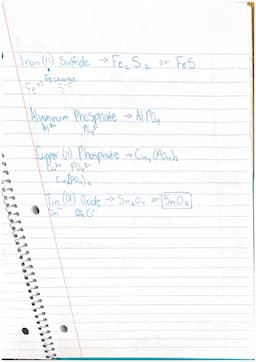 Iron (II) Sulfide → Fe₂S₂ or FeS
Fe charge
Fe²⁺ S²⁻
Aluminum Phosphate → AlPO₄
Al³⁺ PO₄³⁻
Copper (II) Phosphate → Cu₃(PO₄)₂
Cu²⁺ PO₄³⁻
Cu₃(PO₄)₂
Tin (IV) Oxide → Sn₂O₄ or SnO₂